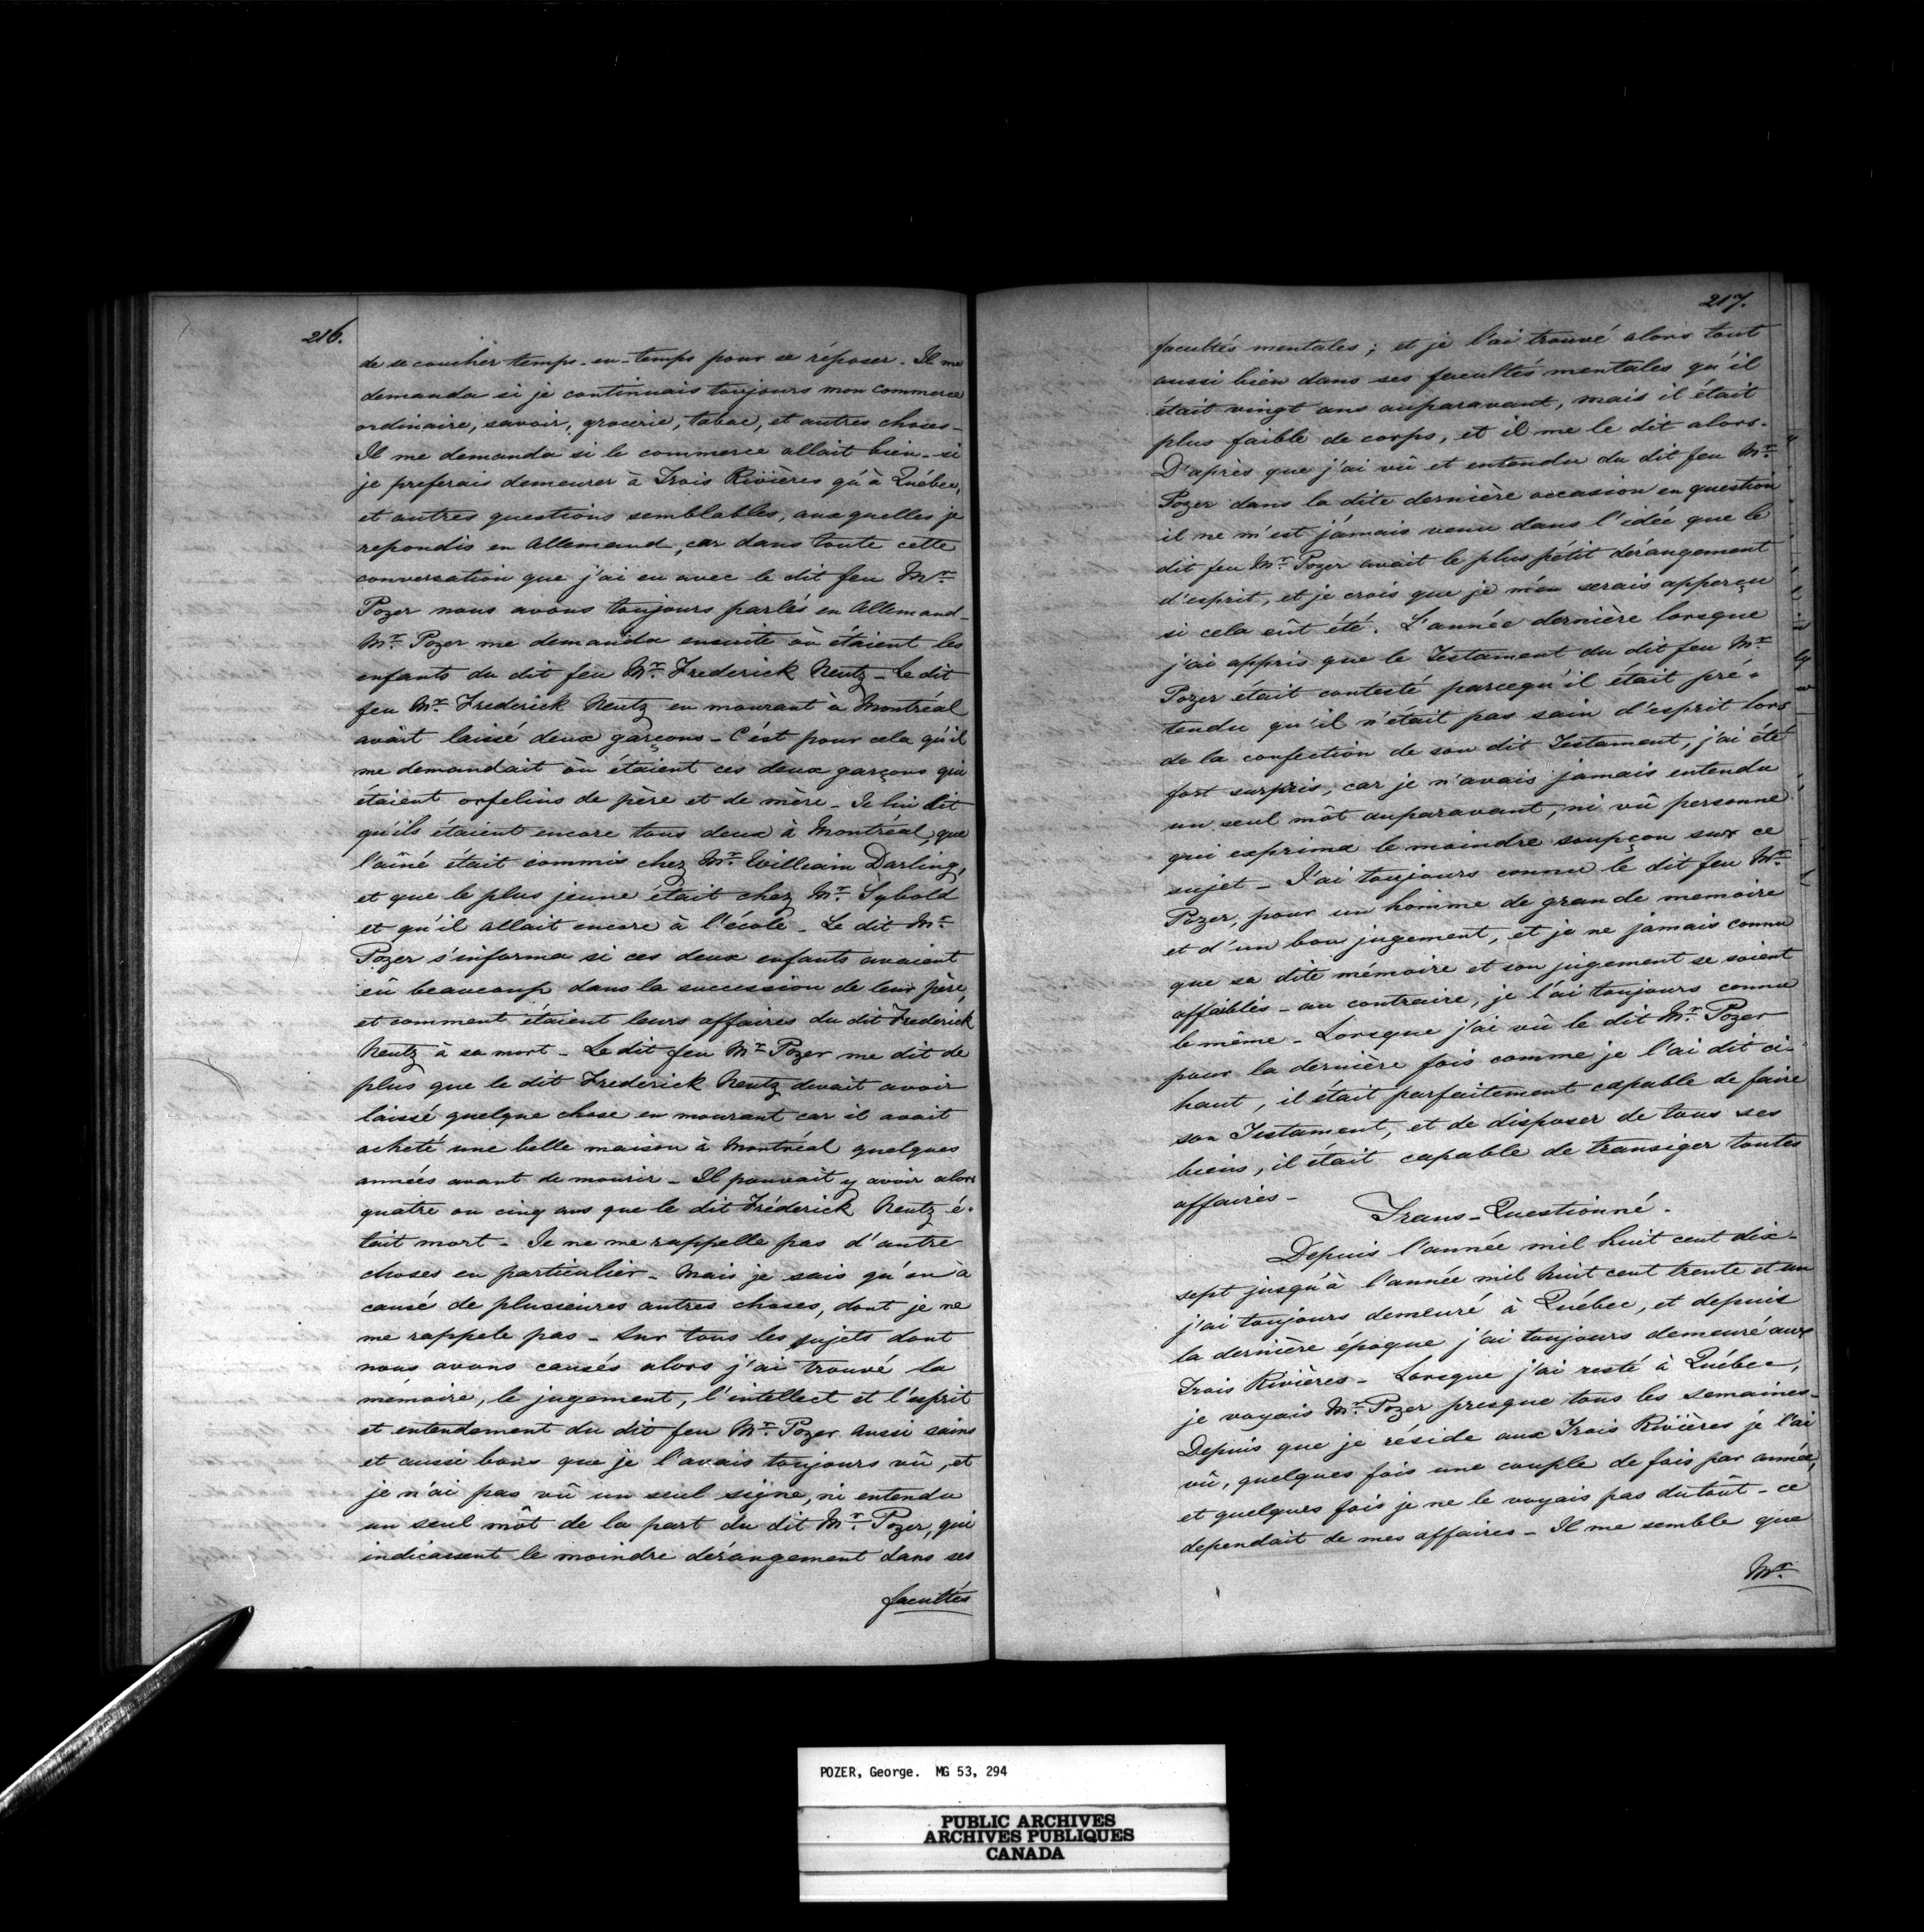 216.
de se coucher temps-en-temps pour se réposer. Il me
demanda si je continuais toujours mon commerce
ordinaire, savoir, grocerie, tabac, et autres choses -
Il me demanda si le commerce allait bien - si
je preferais demeurer à Trois Rivières qu'à Québec,
et autres questions semblables, aux quelles je
repondis en Allemand, car dans toute cette
conversation que j'ai eu avec le dit feu Mr.
Pozer nous avons toujours parlés en Allemand -
Mr. Pozer me demanda ensuite où étaient les
enfants du dit feu Mr. Frederick Reutz - Le dit
feu Mr. Frederick Reutz en mourant à Montréal
avait laissé deux garçons - C'ést pour cela qu'il
me demandait où étaient ces deux garçons qui
étaient orfelins de père et de mère - Je lui dit
qu'ils étaient encore tous deux à Montréal, que
l'aîné était commis chez Mr. William Darling,
et que le plus jeune était chez Mr. Sybold
et qu'il allait encore à l'école - Le dit Mr.
Pozer s'informa si ces deux enfants avaient
eû beaucoup dans la succession de leur père,
et comment étaient leurs affaires du dit Frederick
Reutz à sa mort - Le dit feu Mr. Pozer me dit de
plus que le dit Frederick Reutz devait avoir
laissé quelque chose en mourant car il avait
acheté une belle maison à Montréal quelques
années avant de mourir - Il pouvait y avoir alors
quatre ou cinq ans que le dit Fréderick Reutz é-
tait mort - Je ne me rappelle pas d'autre
choses en particulier - Mais je sais qu'on a
causé de plusieures autres choses, dont je ne
me rappele pas - Sur tous les sujets dont
nous avons causés alors j'ai trouvé la
mémoire, le jugement, l'intellect et l'esprit
et entendement du dit feu Mr. Pozer aussi sains
et aussi bons que je l'avais toujours vû, et
je n'ai pas vû un seul signe, ni entendu
un seul môt de la part du dit Mr. Pozer, qui
indicassent le moindre dérangement dans ses
facultés
217.
facultés mentales; et je l'ai trouvé alors tout
aussi bien dans ses facultés mentales qu'il
était vingt ans auparavant, mais il était
plus faible de corps, et il me le dit alors.
D'après que j'ai vû et entendu du dit feu Mr.
Pozer dans la dite dernière occasion en question
il ne m'est jámais venu dans l'idée que le
dit feu Mr. Pozer avait le plus pétit dérangement
d'esprit, et je crois que je m'en serais apperçu
si cela eût été. L'année dernière lorsque
j'ai appris que le Testament du dit feu Mr.
Pozer était contesté parcequ'il était pré-
tendu qu'il n'était pas sain d'esprit lors
de la confection de son dit Testament, j'ai été
fort surpris, car je n'avais jamais entendu
un seul môt auparavant, ni vû personne
qui exprima le moindre soupçon sur ce
sujet - J'ai toujours connu le dit feu Mr.
Pozer, pour un homme de grande memoire
et d'un bon jugement, et je ne jamais connu
que sa dite mémoire et son jugement se soient
affaiblis - au contraire, je l'ai toujours connu
le même - Lorsque j'ai vû le dit Mr. Pozer
pour la dernière fois comme je l'ai dit ci-
haut, il était parfaitement capable de faire
son Testament, et de disposer de tous ses
biens, il était capable de transiger toutes
affaires -
Trans-Questionné.
Depuis l'année mil huit cent dix-
sept jusqu'à l'année mil huit cent trente et un
j'ai toujours demeuré à Québec, et depuis
la dernière époque j'ai toujours demeuré aux
Trois Rivières - Lorsque j'ai resté à Québec,
je voyais Mr. Pozer presque tous les semaines -
Depuis que je réside aux Trois Rivières je l'ai
vû, quelques fois une couple de fois par année,
et quelques fois je ne le voyais pas du tôut - ce
dependait de mes affaires - Il me semble que
Mr.
POZER, George. MG 53, 294
PUBLIC ARCHIVES
ARCHIVES PUBLIQUES
CANADA